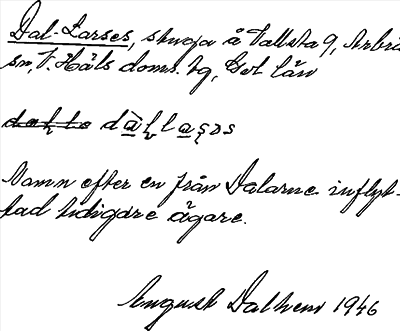 Dal-Larses, stuga å Vallsta 9, Arbrå
sn, V. Häls doms. bg, Gvl län
dàl̥laṣəs
Namn efter en från Dalarne inflyt-
tad tidigare ägare.
August Dalhem 1946